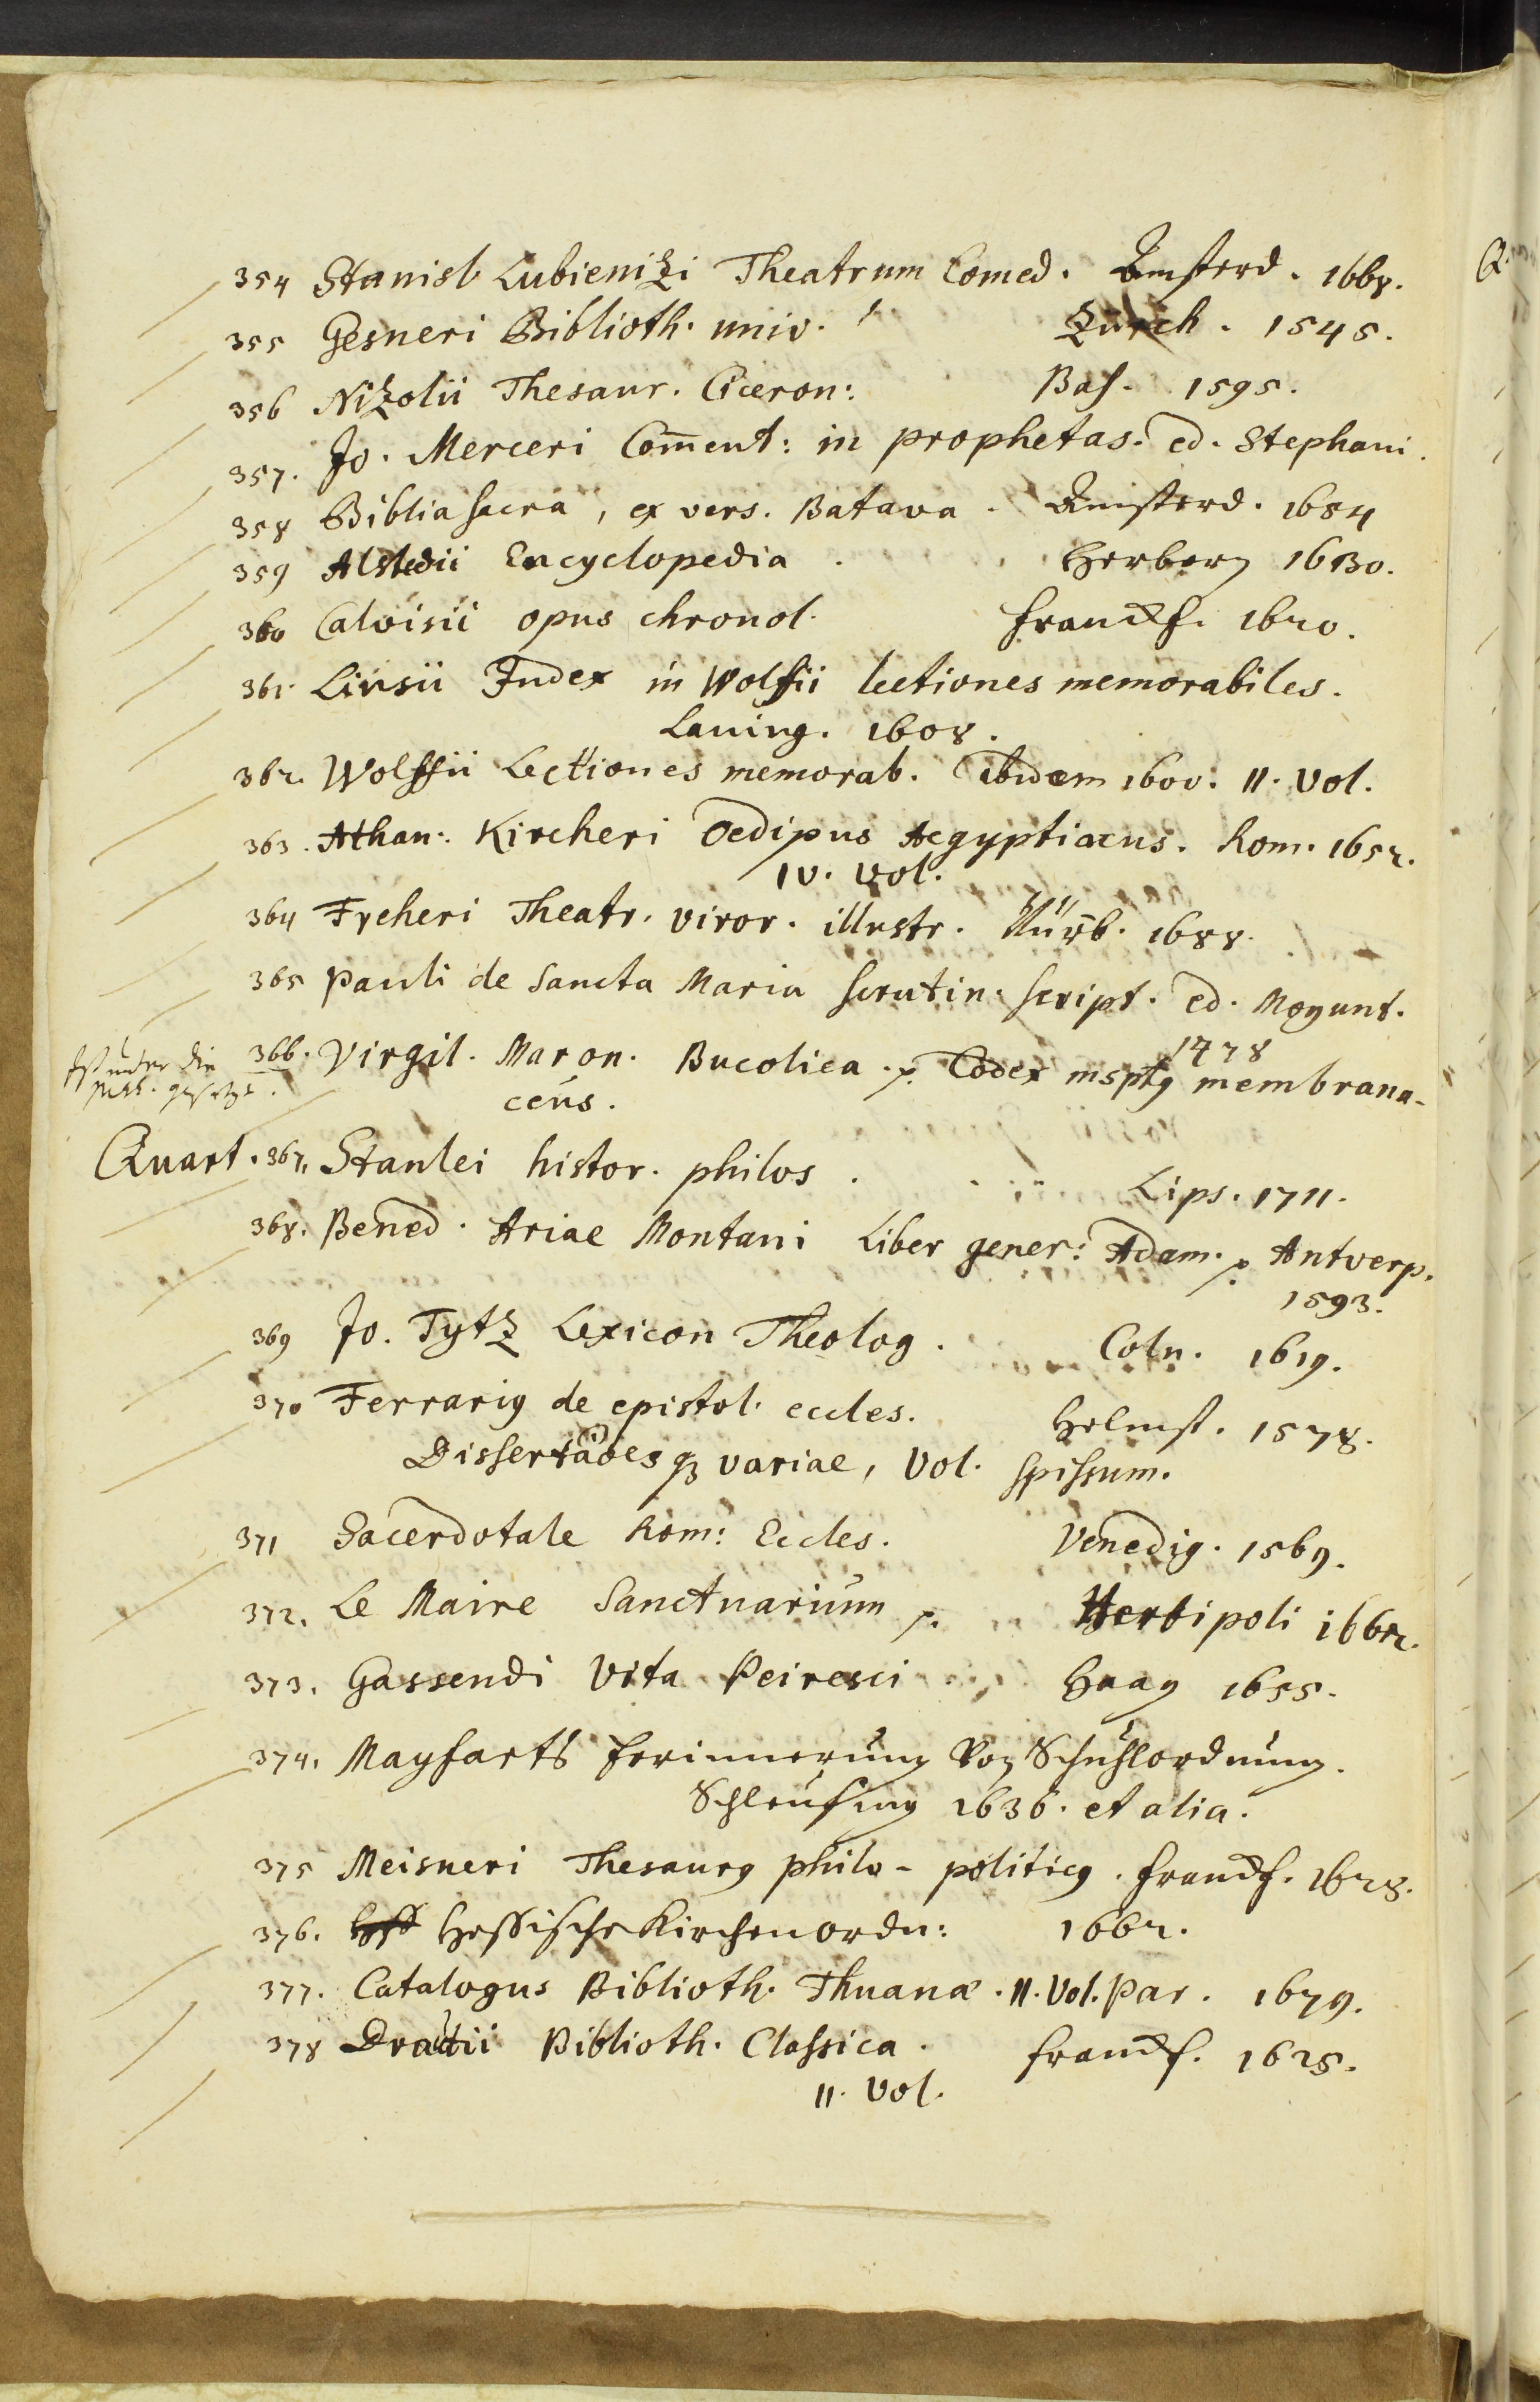 354 Stanisl. Lubienizi Theatrum Comed. Amsterd. 1668.
355 Gesneri Biblioth. univ. Zürch. 1545.
356 Nizolii Thesaur. Ciceron: Bas. 1595.
357. Jo. Merceri Com̅ent: in prophetas. ed. Stephani.
358 Biblia sacra, ex vers. Batava. Amsterd. 1684
359 Alstedii Encyclopedia. Herborn 1630.
360 Calvisii opus chronol. Franckf. 1620.
361. Linsii Index in Wolfii lectiones memorabiles.
Lauing. 1608.
362. Wolffii Lectiones memorab. ibidem 1600. II. Vol.
363. Athan: Kircheri Oedipus Aegyptiacus. Rom. 1652.
IV. Vol.
364 Freheri Theatr. viror. illustr. Nürb. 1688.
365 Pauli de Sancta Maria scrutin. script. ed. Mogunt.
1478
366. Virgil. Maron. Bucolica. p. Codex msptꝰ membrana-
ceus.
Ist unter die
Mss. gesetzt.
Quart. 367. Stanlei histor. philos. Lips. 1711.
368. Bened. Ariae Montani Liber gener: Adam. p. Antverp.
1593.
369 Jo. Tytz Lexicon Theolog. Coln. 1619.
370 Ferrariꝰ de epistol. eccles. Helmst. 1578.
Dissertãoes qȝ variae, Vol. spissum.
371 Sacerdotale Rom: Eccles. Venedig. 1569.
372. Le Maire Sanctuarium p. Herbipoli 1662.
373. Gassendi Vita Peiresci Haag 1655.
374. Mayfarts Erinnerung Von Schuhlordnung.
Schleusing 1636. et alia.
375 Meisneri Thesaurꝰ philo-politicꝰ. Franckf. 1628.
376. Hessische Kirchenordn: 1662.
377. Catalogus Biblioth. Thuanæ. II. Vol. Par. 1679.
378 Drautii Biblioth. Classica. Franckf. 1625.
II. Vol.